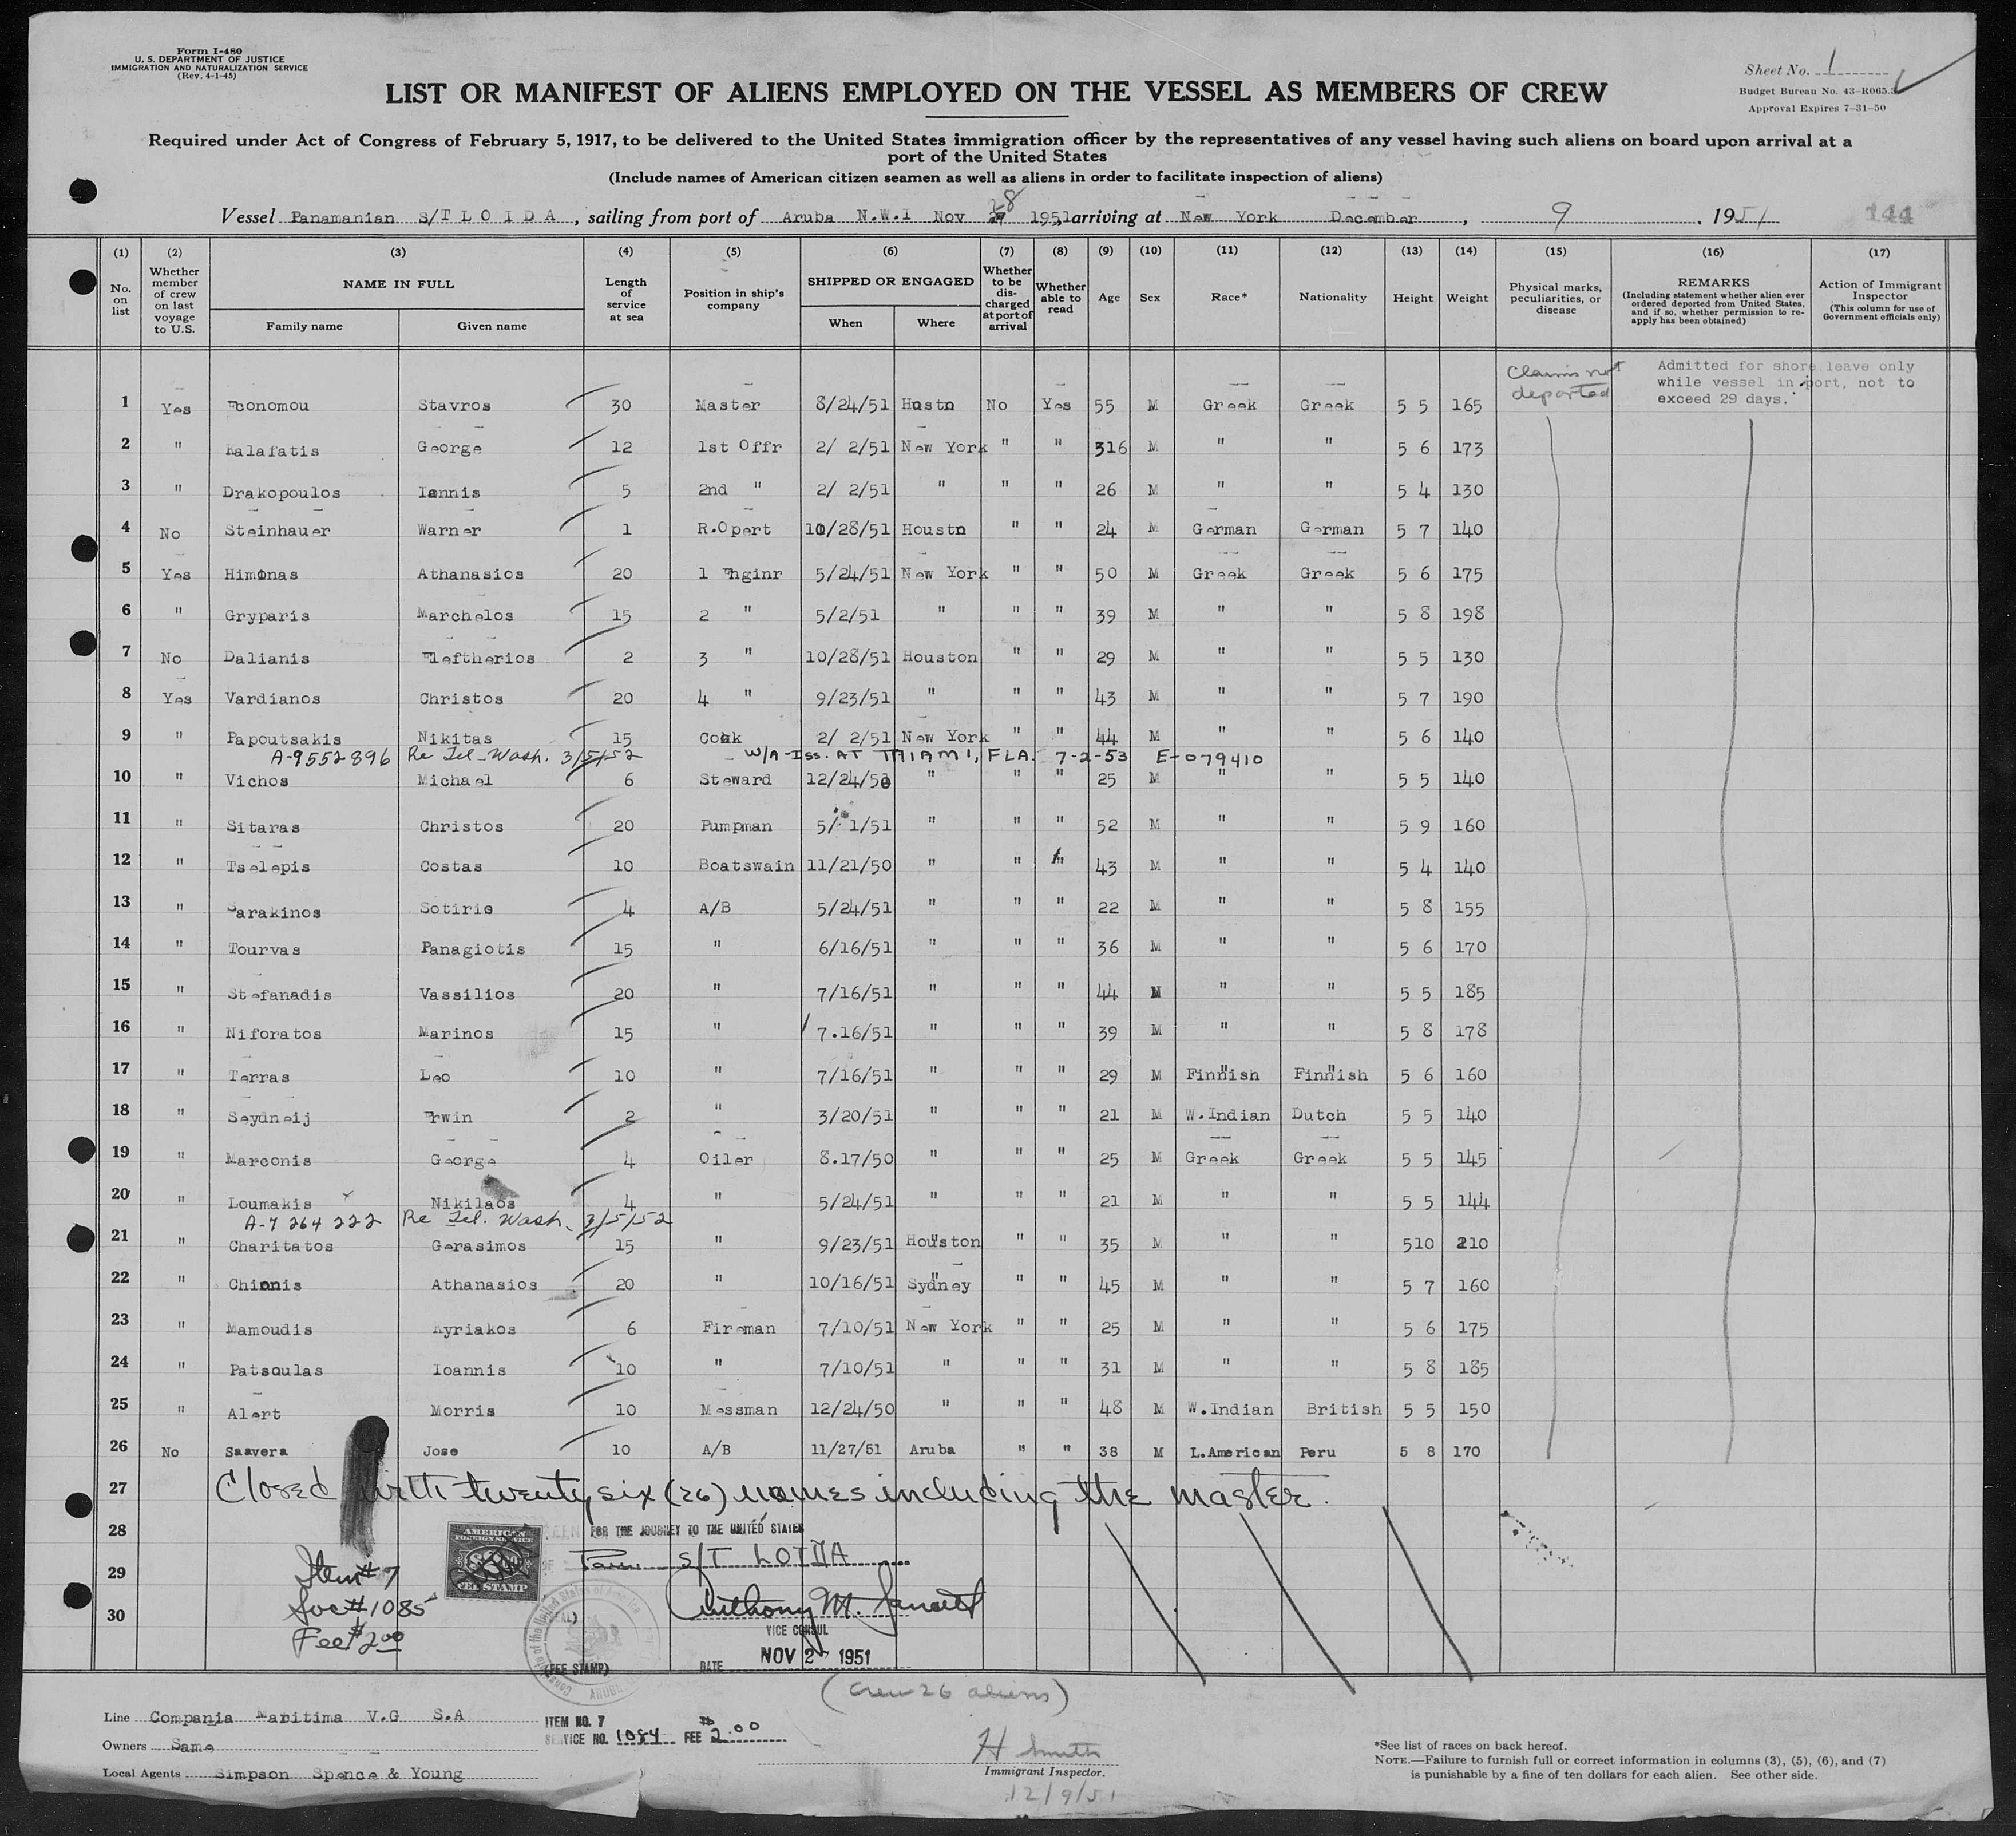 Form I-480
U. S. DEPARTMENT OF JUSTICE
IMMIGRATION AND NATURALIZATION SERVICE
(Rev. 4-1-45)
Sheet No. 1
Budget Bureau No. 43-R065.
Approval Expires 7-31-50
LIST OR MANIFEST OF ALIENS EMPLOYED ON THE VESSEL AS MEMBERS OF CREW
Required under Act of Congress of February 5, 1917, to be delivered to the United States immigration officer by the representatives of any vessel having such aliens on board upon arrival at a
port of the United States
(Include names of American citizen seamen as well as aliens in order to facilitate inspection of aliens)
Vessel Panamanian S/T L O I D A, sailing from port of Aruba N.W.I Nov 28 1951, arriving at New York December, 9, 1951 144
(1) (2) (3) (4) (5) (6) (7) (8) (9) (10) (11) (12) (13) (14) (15) (16) (17)
No. on list
Whether member of crew on last voyage to U.S.
NAME IN FULL
Family name Given name
Length of service at sea
Position in ship's company
SHIPPED OR ENGAGED
When Where
Whether to be discharged at port of arrival
Whether able to read
Age Sex Race* Nationality Height Weight
Physical marks, peculiarities, or disease
REMARKS
(Including statement whether alien ever ordered deported from United States, and if so, whether permission to re-apply has been obtained)
Action of Immigrant Inspector
(This column for use of Government officials only)
Claims not deported
Admitted for shore leave only
while vessel in port, not to
exceed 29 days.
1 Yes Economou Stavros 30 Master 8/24/51 Hustn No Yes 55 M Greek Greek 5 5 165
2 " Kalafatis George 12 1st Offr 2/ 2/51 New York " " 316 M " " 5 6 173
3 " Drakopoulos Iannis 5 2nd " 2/ 2/51 " " " 26 M " " 5 4 130
4 No Steinhauer Warner 1 R.Opert 10/28/51 Houstn " " 24 M German German 5 7 140
5 Yes Himonas Athanasios 20 1 Enginr 5/24/51 New York " " 50 M Greek Greek 5 6 175
6 " Gryparis Marchelos 15 2 " 5/2/51 " " " 39 M " " 5 8 198
7 No Dalianis Eleftherios 2 3 " 10/28/51 Houston " " 29 M " " 5 5 130
8 Yes Vardianos Christos 20 4 " 9/23/51 " " " 43 M " " 5 7 190
9 " Papoutsakis Nikitas 15 Cook 2/ 2/51 New York " " 44 M " " 5 6 140
A-9552896 Re Tel. Wash. 3/5/52 W/A-Iss. AT MIAMI, FLA. 7-2-53 E-079410
10 " Vichos Michael 6 Steward 12/24/50 " " " 25 M " " 5 5 140
11 " Sitaras Christos 20 Pumpman 5/ 1/51 " " " 52 M " " 5 9 160
12 " Tselepis Costas 10 Boatswain 11/21/50 " " " 43 M " " 5 4 140
13 " Sarakinos Sotiris 4 A/B 5/24/51 " " " 22 M " " 5 8 155
14 " Tourvas Panagiotis 15 " 6/16/51 " " " 36 M " " 5 6 170
15 " Stefanadis Vassilios 20 " 7/16/51 " " " 44 M " " 5 5 185
16 " Niforatos Marinos 15 " 7.16/51 " " " 39 M " " 5 8 178
17 " Terras Leo 10 " 7/16/51 " " " 29 M Finnish Finnish 5 6 160
18 " Seydneij Erwin 2 " 3/20/51 " " " 21 M W.Indian Dutch 5 5 140
19 " Marconis George 4 Oiler 8.17/50 " " " 25 M Greek Greek 5 5 145
20 " Loumakis Nikilaos 4 " 5/24/51 " " " 21 M " " 5 5 144
A-7 264 222 Re Tel. Wash. 3/5/52
21 " Charitatos Gerasimos 15 " 9/23/51 Houston " " 35 M " " 510 210
22 " Chionis Athanasios 20 " 10/16/51 Sydney " " 45 M " " 5 7 160
23 " Mamoudis Kyriakos 6 Fireman 7/10/51 New York " " 25 M " " 5 6 175
24 " Patsoulas Ioannis 10 " 7/10/51 " " " 31 M " " 5 8 185
25 " Alert Morris 10 Messman 12/24/50 " " " 48 M W.Indian British 5 5 150
26 No Saavera Jose 10 A/B 11/27/51 Aruba " " 38 M L.American Peru 5 8 170
27 Closed with twenty six (26) names including the master.
28
29
30
AMERICAN FOREIGN SERVICE
FEE STAMP
FOR THE JOURNEY TO THE UNITED STATES
Pan. S/T LOIDA
Anthony M.
VICE CONSUL
DATE NOV 27 1951
(FEE STAMP)
Item # 7
Svc # 1085
Fee $2.00
(crew 26 aliens)
Line Compania Maritima V.G S.A
Owners Same
Local Agents Simpson Spence & Young
ITEM NO. 7
SERVICE NO. 1084 FEE $2.00
H Smith
Immigrant Inspector.
12/9/51
*See list of races on back hereof.
NOTE.—Failure to furnish full or correct information in columns (3), (5), (6), and (7)
is punishable by a fine of ten dollars for each alien. See other side.